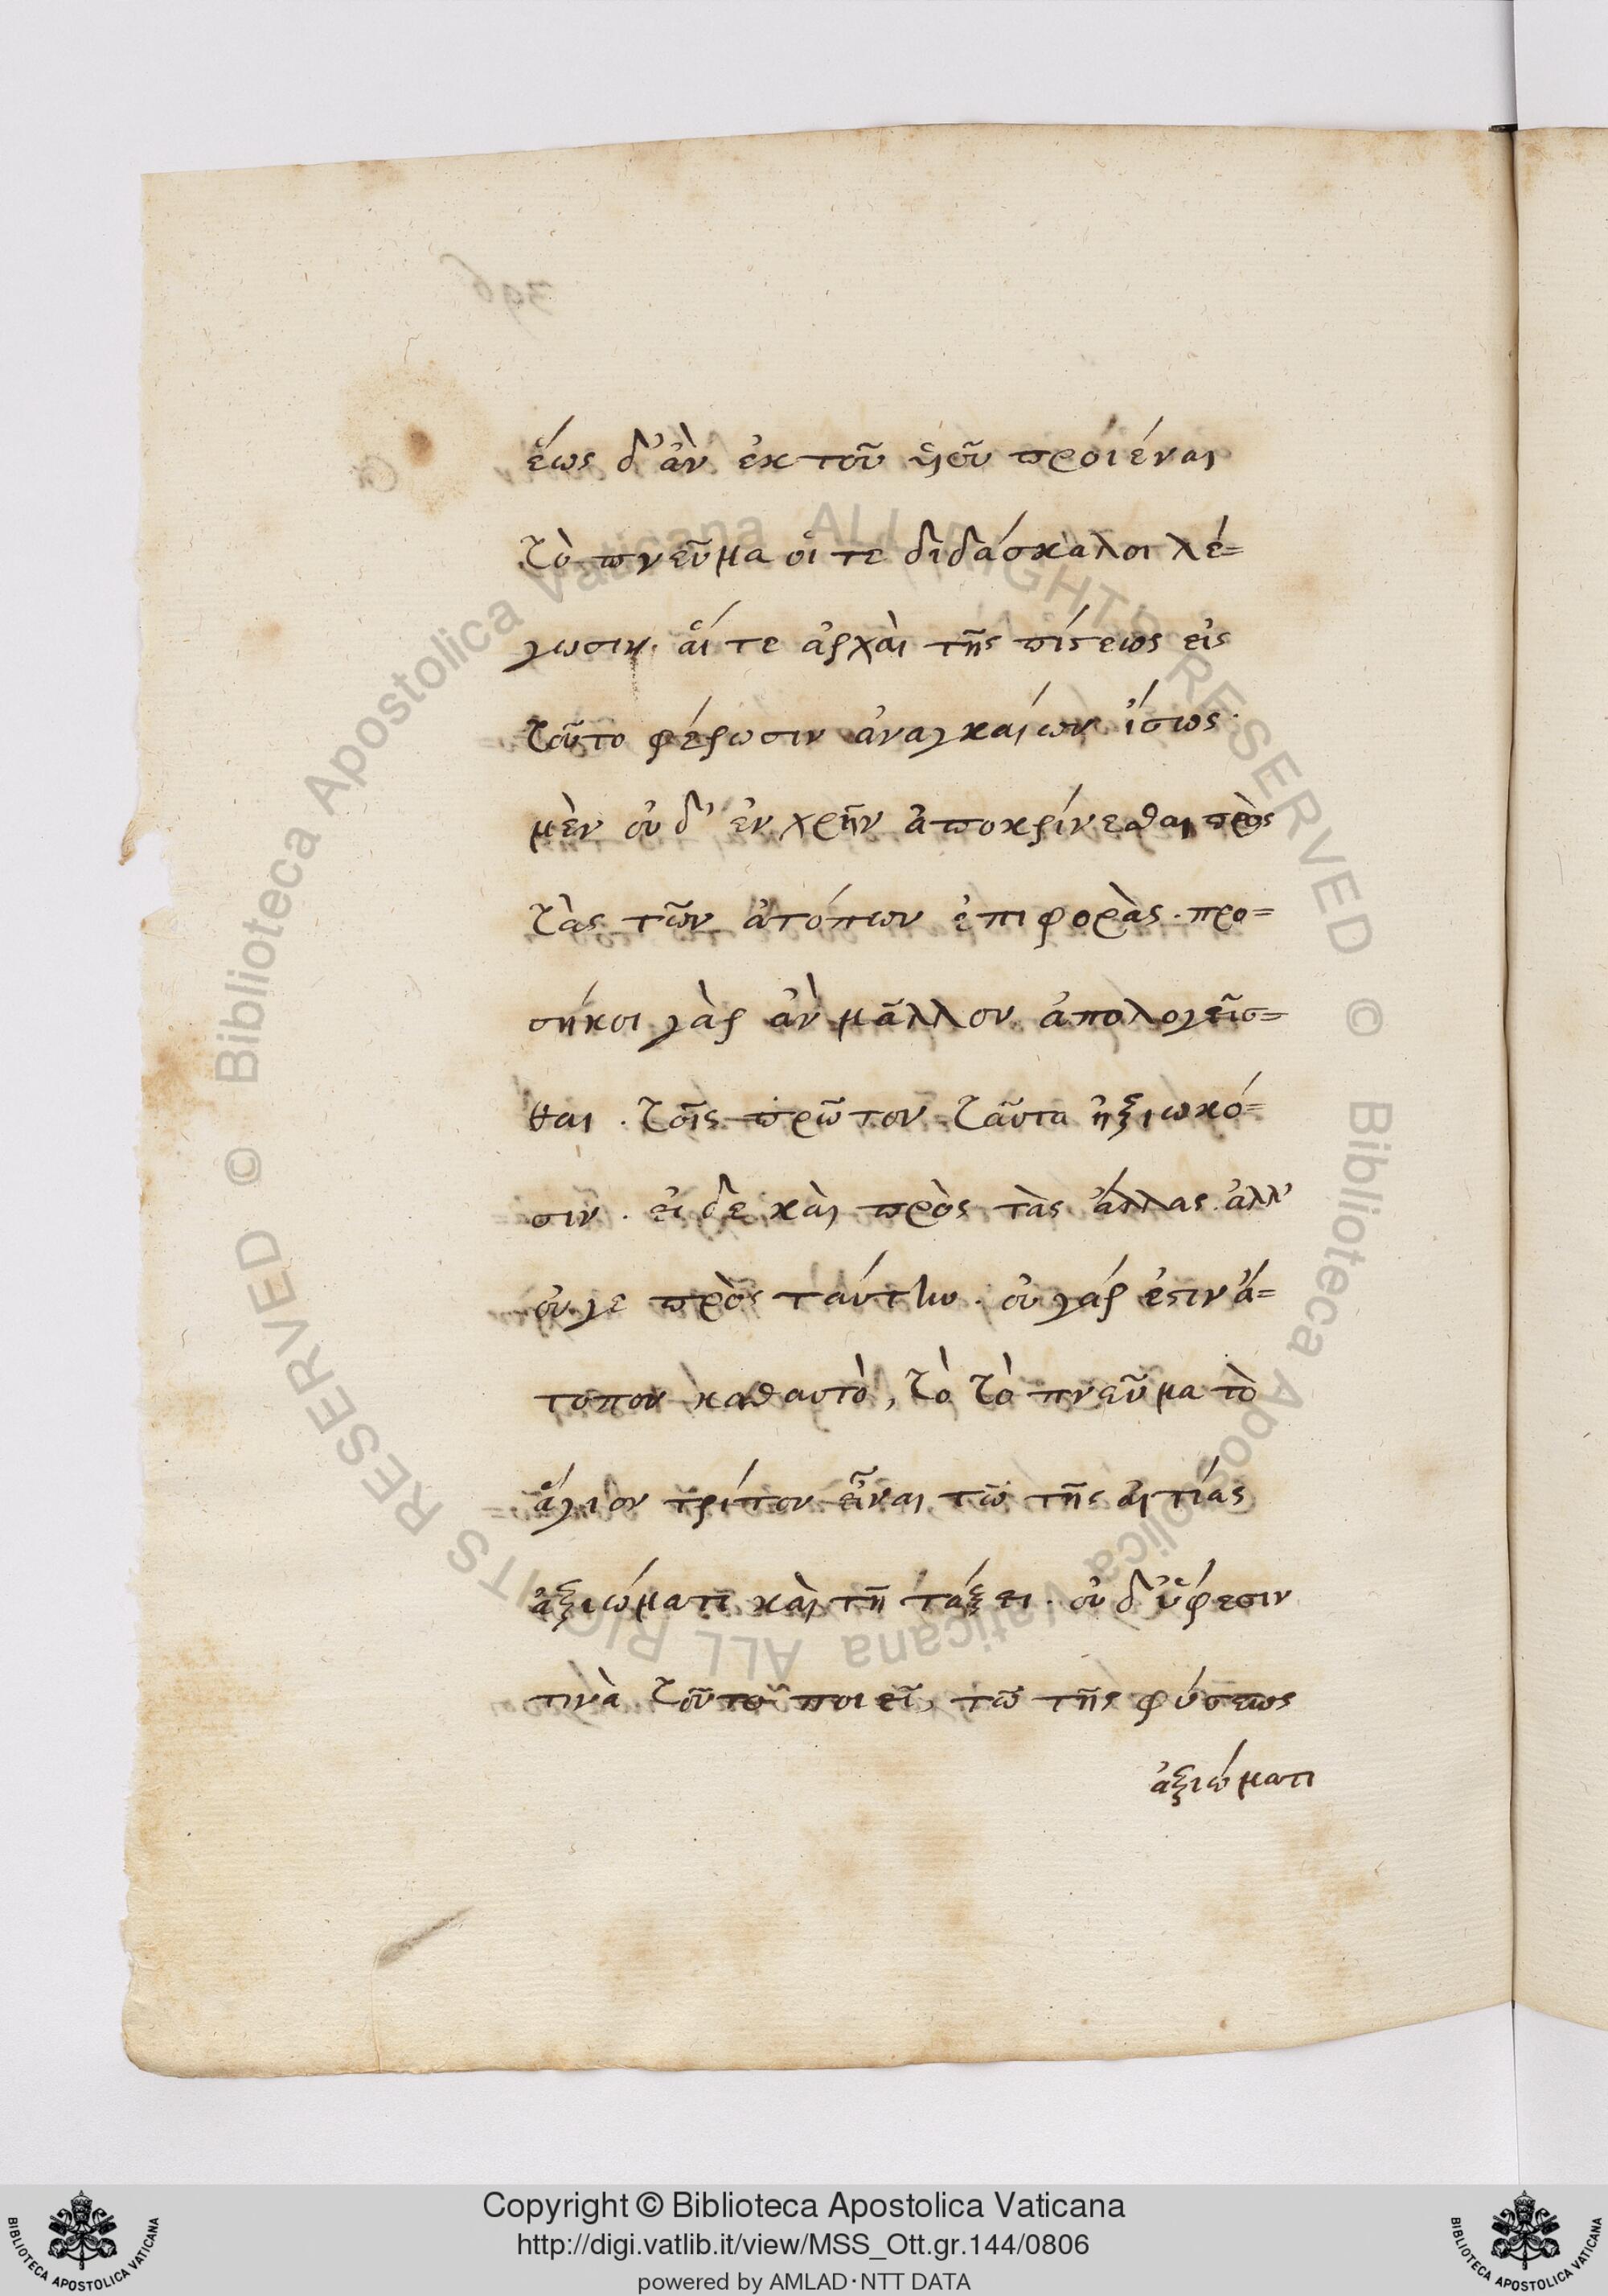 ἕως δ' ἂν ἐκ τοῦ υἱοῦ προϊέναι
τὸ πνεῦμα οἵ τε διδάσκαλοι λέ=
γωσιν. αἵ τε ἀρχαὶ τῆς πίστεως εἰς
τοῦτο φέρωσιν ἀναγκαίων ἴσως
μὲν οὐδ' ἐν χρῆν ἀποκρίνεσθαι πρὸς
τὰς τῶν ἀτόπων ἐπιφορὰς. προ=
σήκοι γὰρ ἂν μᾶλλον ἀπολογεῖσ=
θαι. τοῖς πρῶτον ταῦτα ἠξιωκό=
σιν. εἰ δὲ καὶ πρὸς τὰς ἄλλας ἀλλ'
οὔγε πρὸς ταύτην. οὐ γάρ ἐστιν ἄ=
τοπον καθαυτὸ, τὸ τὸ πνεῦμα τὸ
ἅγιον τρίτον εἶναι τῶ τῆς αἰτίας
ἀξιώματι καὶ τῆ τάξει. οὐδ' ὕφεσιν
τινὰ τοῦτο ποιεῖ, τῶ τῆς φύσεως
ἀξιώματι
396
© Biblioteca Apostolica Vaticana ALL RIGHTS RESERVED © Biblioteca Apostolica Vaticana ALL RIGHTS RESERVED
BIBLIOTECA APOSTOLICA VATICANA
Copyright © Biblioteca Apostolica Vaticana
http://digi.vatlib.it/view/MSS_Ott.gr.144/0806
powered by AMLAD·NTT DATA
BIBLIOTECA APOSTOLICA VATICANA